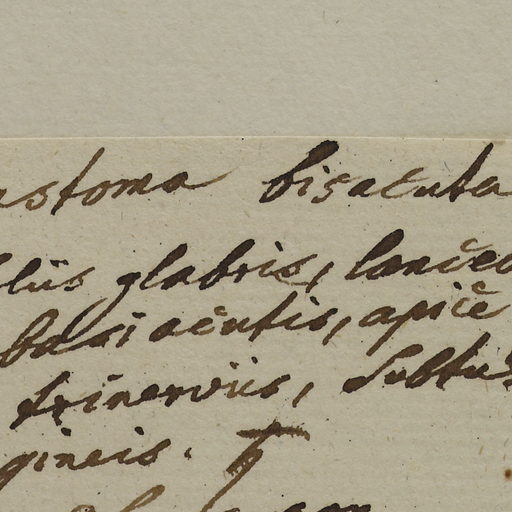 astoma bisacuta
liis glabris, lanceo
basi acutis, apice
trinerviis, subtus
gineis. ♄